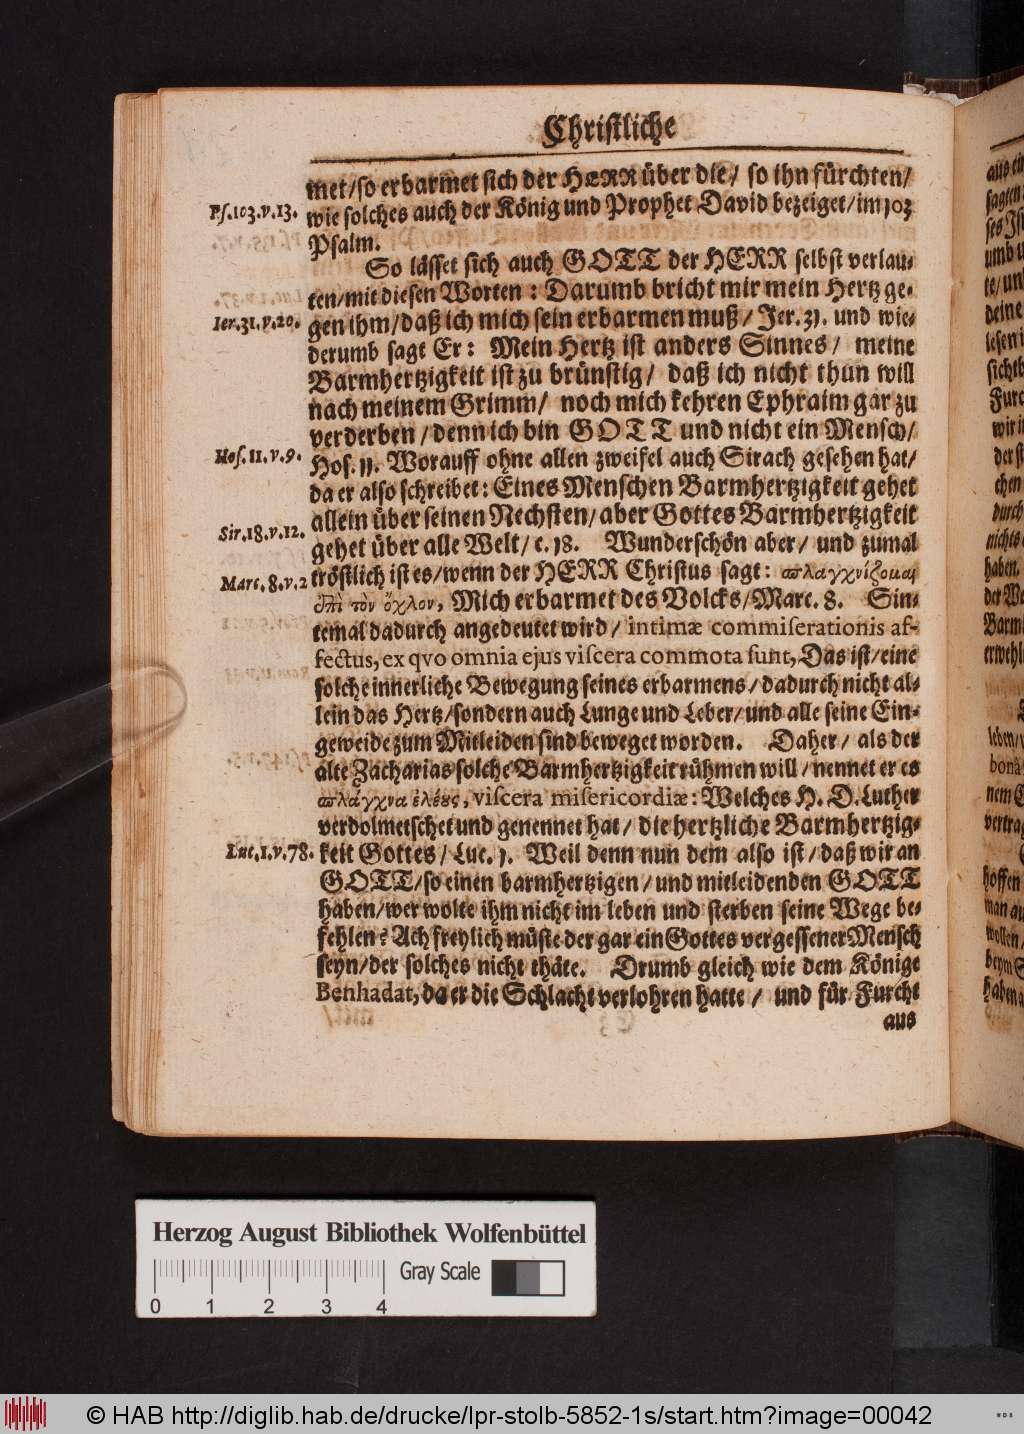 Christliche
met/so erbarmet sich der HERR über die/ so ihn fürchten/
Ps.103.v.13.
wie solches auch der König und Prophet David bezeiget/im 103
Psalm.
So lässet sich auch GOTT der HERR selbst verlau-
ten/mit diesen Worten: Darumb bricht mir mein Hertz ge-
Ier.31.v.20.
gen ihm/daß ich mich sein erbarmen muß/ Jer. 31. und wie-
derumb sagt Er: Mein Hertz ist anders Sinnes/ meine
Barmhertzigkeit ist zu brünstig/ daß ich nicht thun will
nach meinem Grimm/ noch mich kehren Ephraim gar zu
verderben/denn ich bin GOTT und nicht ein Mensch/
Hos.11.v.9.
Hos. 11. Worauff ohne allen zweifel auch Sirach gesehen hat/
da er also schreibet: Eines Menschen Barmhertzigkeit gehet
allein über seinen Nechsten/aber Gottes Barmhertzigkeit
Sir.18.v.12.
gehet über alle Welt/ c. 18. Wunderschön aber/ und zumal
Marc.8.v.2
tröstlich ist es/wenn der HERR Christus sagt: σπλαγχνίζομαι
ἐπὶ τὸν ὄχλον, Mich erbarmet des Volcks/Marc. 8. Sin-
temal dadurch angedeutet wird/ intimæ commiserationis af-
fectus, ex qvo omnia ejus viscera commota sunt, Das ist/eine
solche innerliche Bewegung seines erbarmens/dadurch nicht al-
lein das Hertz/sondern auch Lunge und Leber/und alle seine Ein-
geweide zum Mitleiden sind beweget worden. Daher/ als der
alte Zacharias solche Barmhertzigkeit rühmen will/nennet er es
σπλάγχνα ἐλέους, viscera misericordiæ: Welches H. D. Luther
verdolmetschet und genennet hat/ die hertzliche Barmhertzig-
Luc.1.v.78.
keit Gottes/ Luc. 1. Weil denn nun dem also ist/daß wir an
GOTT/so einen barmhertzigen/und mitleidenden GOTT
haben/wer wolte ihm nicht im leben und sterben seine Wege be-
fehlen? Ach freylich müste der gar ein Gottes vergessener Mensch
seyn/der solches nicht thäte. Drumb gleich wie dem Könige
Benhadat, da er die Schlacht verlohren hatte/ und für Furcht
aus
Herzog August Bibliothek Wolfenbüttel
0 1 2 3 4
Gray Scale
© HAB http://diglib.hab.de/drucke/lpr-stolb-5852-1s/start.htm?image=00042